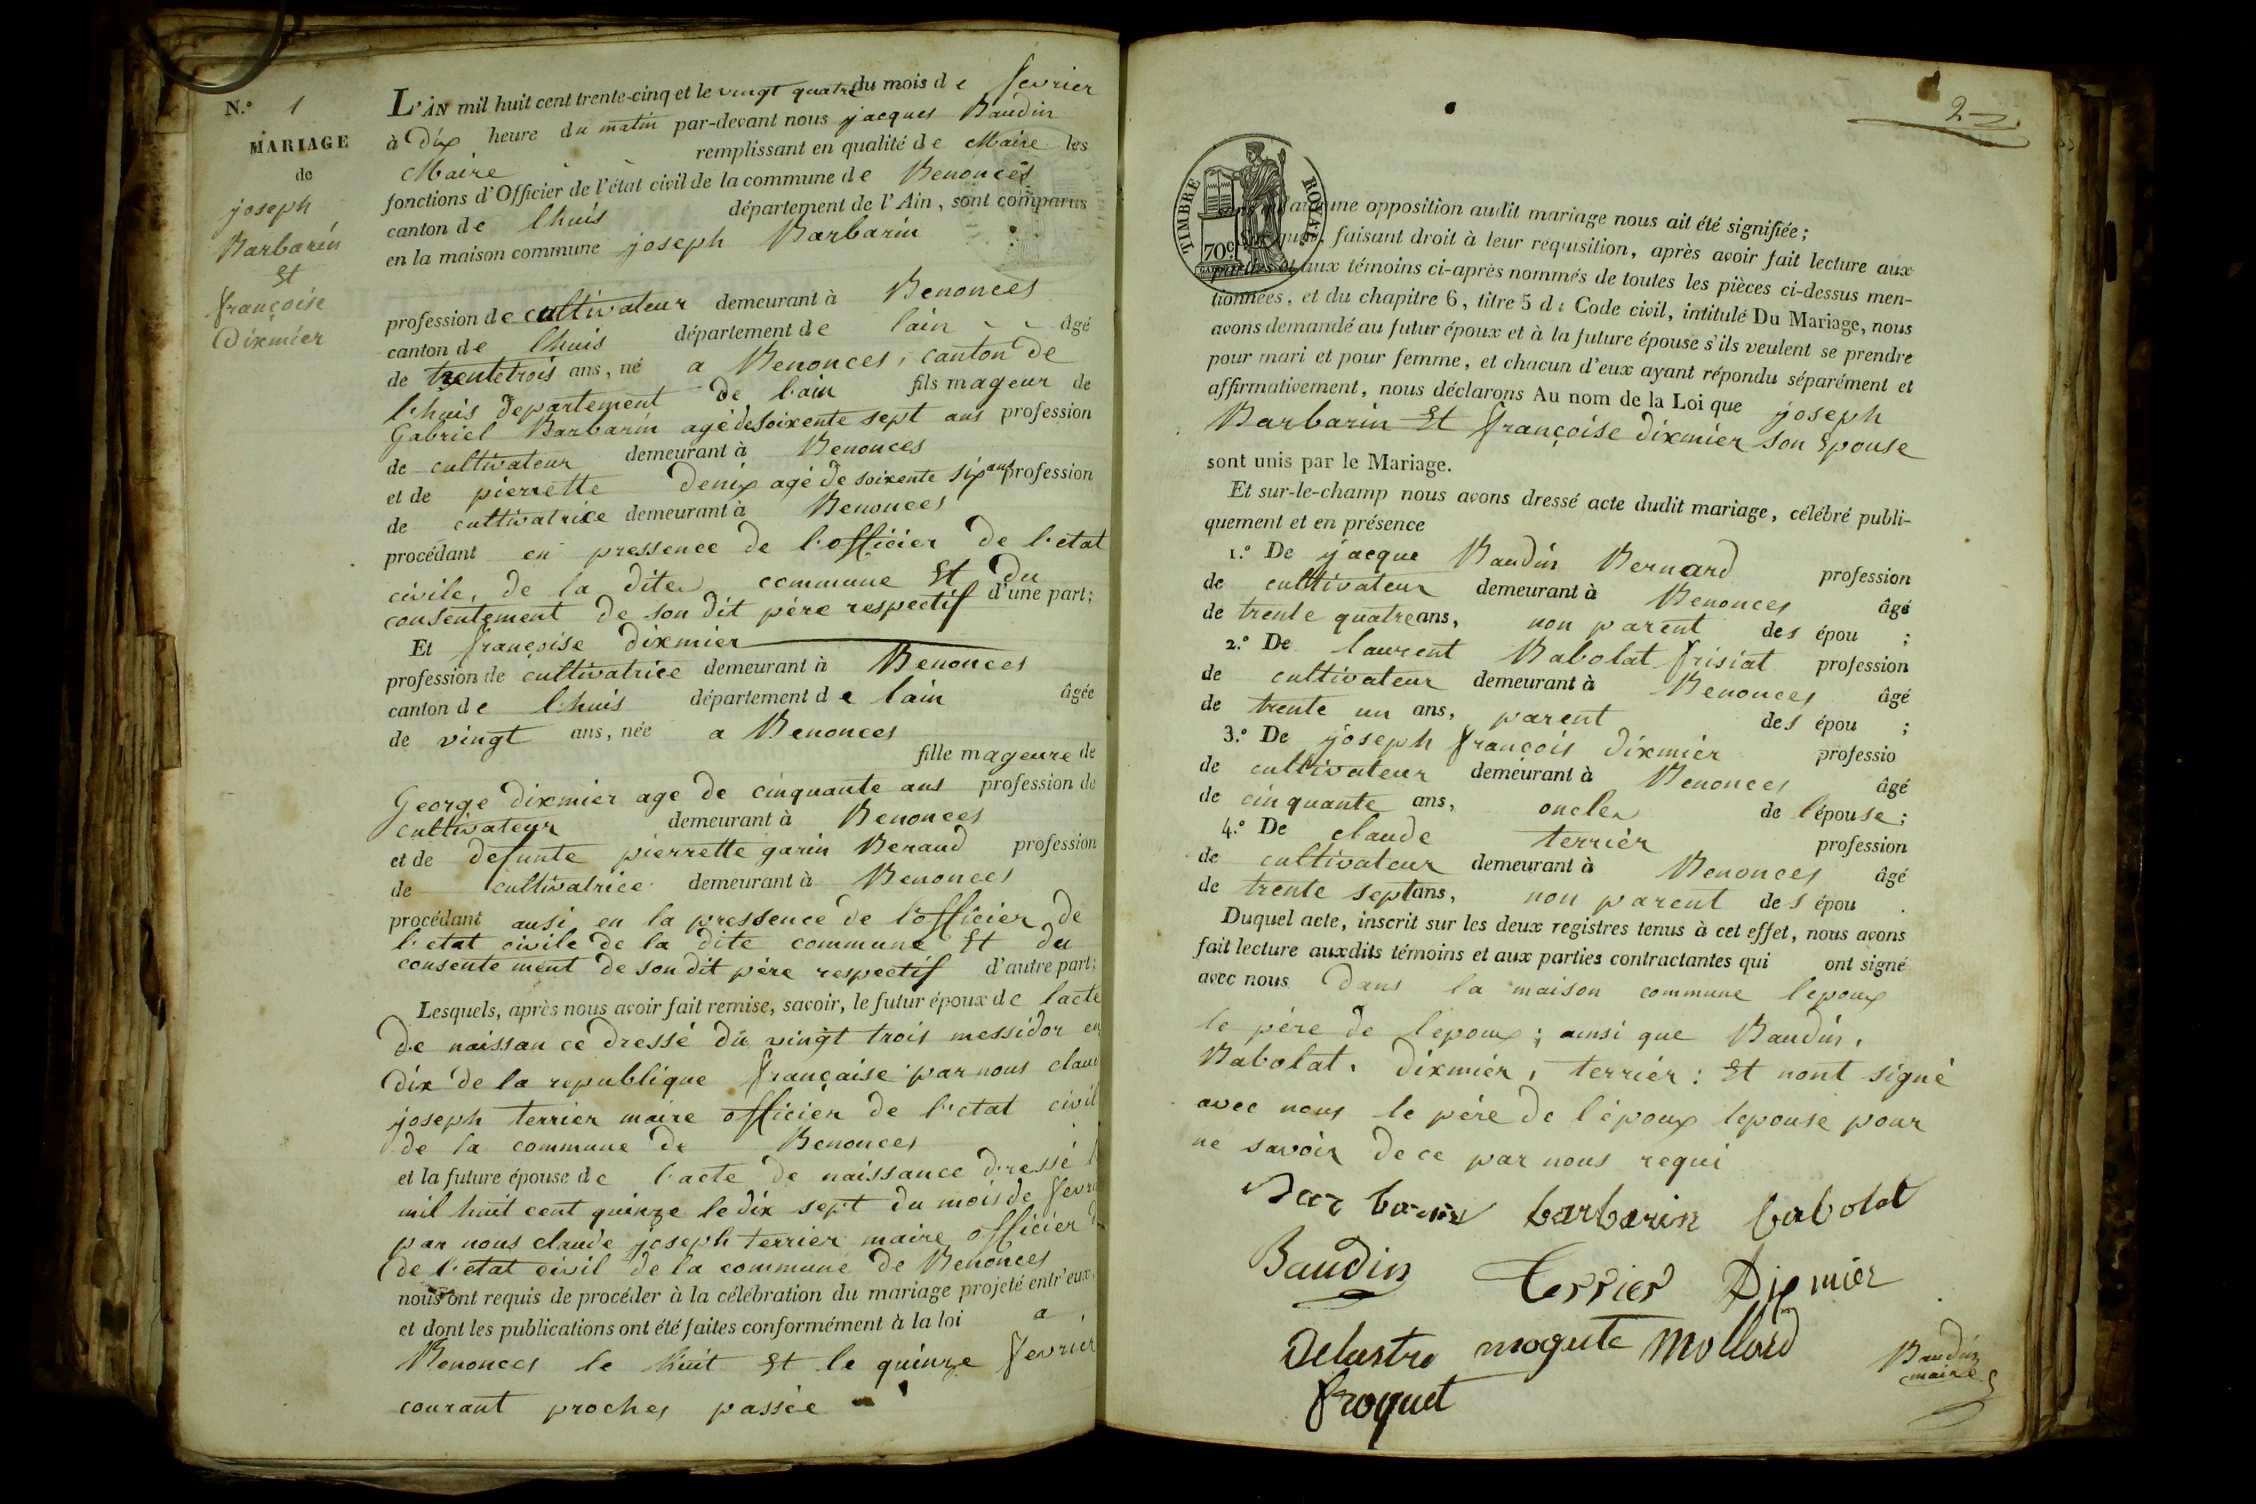 N.º 1
MARIAGE
de
joseph
Barbarin
Et
françoise
Dixmier
L'AN mil huit cent trente-cinq et le vingt quatre du mois de fevrier
à Dix heure du matin par-devant nous jacques Baudin
Maire remplissant en qualité de Maire les
fonctions d'Officier de l'état civil de la commune de Benonces
canton de lhuis département de l'Ain, sont comparus
en la maison commune joseph Barbarin
profession de cultivateur demeurant à Benonces
canton de lhuis département de lain âgé
de trentetrois ans, né a Benonces, canton de
lhuis departement de lain fils mageur de
Gabriel Barbarin agé de soixente sept ans profession
de cultivateur demeurant à Benonces
et de pierrette Denix agé de soixente six ans profession
de cultivatrice demeurant à Benonces
procédant en pressence de l'officier de l'etat
civile, de la dite commune Et du
consentement de son dit pére respectif d'une part;
Et françoise dixmier
profession de cultivatrice demeurant à Benonces
canton de lhuis département de lain âgée
de vingt ans, née a Benonces
fille mageure de
George dixmier age de cinquante ans profession de
cultivateur demeurant à Benonces
et de defunte pierrette garin Benaud profession
de cultivatrice demeurant à Benonces
procédant ausi en la pressence de l'officier de
l'etat civile de la dite commune Et du
consente ment de son dit pére respectif d'autre part;
Lesquels, après nous avoir fait remise, savoir, le futur époux de lacte
De naissan ce dressé du vingt trois messidor en
dix de la republique française par nous claude
joseph terrier maire officier de l'etat civil
de la commune de Benonces
et la future épouse de l'acte de naissance dressé
mil huit cent quinze le dix sept du mois de fevri
par nous claude joseph terrier maire officier
de l'etat civil de la commune de Benonces
nous ont requis de procéder à la célébration du mariage projeté entr'eux,
et dont les publications ont été faites conformément à la loi a
Benonces le huit Et le quinze fevrier
courant proches passée
2
TIMBRE ROYAL
70 c
une opposition audit mariage nous ait été signifiée;
faisant droit à leur réquisition, après avoir fait lecture aux
parties et aux témoins ci-après nommés de toutes les pièces ci-dessus men-
tionnées, et du chapitre 6, titre 5 du Code civil, intitulé Du Mariage, nous
avons demandé au futur époux et à la future épouse s'ils veulent se prendre
pour mari et pour femme, et chacun d'eux ayant répondu séparément et
affirmativement, nous déclarons Au nom de la Loi que joseph
Barbarin Et françoise dixmier son Epouse
sont unis par le Mariage.
Et sur-le-champ nous avons dressé acte dudit mariage, célébré publi-
quement et en présence
1.º De jacque Baudin Bernard profession
de cultivateur demeurant à Benonces âgé
de trente quatre ans, non parent des épou ;
2.º De laurent Babolat frisiat profession
de cultivateur demeurant à Benonces âgé
de trente un ans, parent des épou ;
3.º De joseph françois dixmier professio
de cultivateur demeurant à Benonces âgé
de cinquante ans, oncle de l'épouse;
4.º De claude terrier profession
de cultivateur demeurant à Benonces âgé
de trente sept ans, non parent des épou .
Duquel acte, inscrit sur les deux registres tenus à cet effet, nous avons
fait lecture auxdits témoins et aux parties contractantes qui ont signé
avec nous Dans la maison commune lepoux
le pére de lepoux; ainsi que Baudin,
Babolat, dixmier, terrier: Et nont signé
avec nous le pére de l'époux lepouse pour
ne savoir de ce par nous requi
barbarin barbarin babolat
Baudin terrier Dixmier
Delastre mogute Mollard
froquet
Baudin
maire